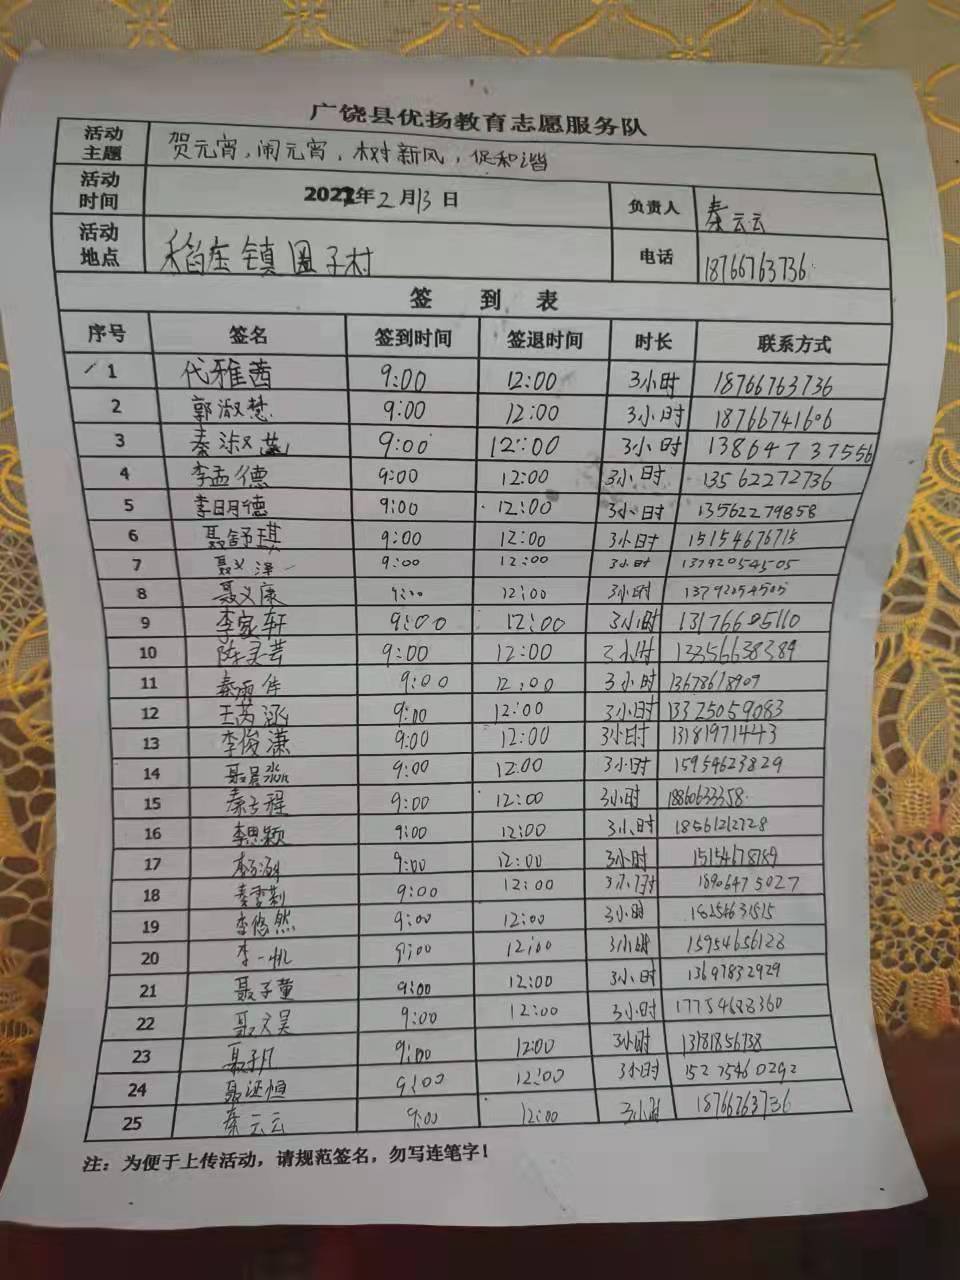 广饶县优扬教育志愿服务队
活动主题 贺元宵,闹元宵,树新风,促和谐
活动时间 2022年2月13日 负责人 秦云云
活动地点 稻庄镇圈子村 电话 18766763736
签 到 表
序号 签名 签到时间 签退时间 时长 联系方式
1 代雅茜 9:00 12:00 3小时 18766763736
2 郭淑慧 9:00 12:00 3小时 18766741606
3 秦淑 9:00 12:00 3小时 13864737556
4 李孟德 9:00 12:00 3小时 13562272736
5 李明德 9:00 12:00 3小时 13562279858
6 聂舒琪 9:00 12:00 3小时 15154676715
7 聂义泽 9:00 12:00 3小时 13792054505
8 聂义康 9:00 12:00 3小时 13792054505
9 李家轩 9:00 12:00 3小时 13176605110
10 陈灵芸 9:00 12:00 3小时 13356638384
11 秦雨佳 9:00 12:00 3小时 13678618909
12 王芮涵 9:00 12:00 3小时 13325059083
13 李俊潇 9:00 12:00 3小时 13181971443
14 聂 9:00 12:00 3小时 15954623829
15 秦子程 9:00 12:00 3小时 18860633358
16 李思颖 9:00 12:00 3小时 18561212728
17 9:00 12:00 3小时 15154678789
18 秦雪莉 9:00 12:00 3小时 18906475027
19 李悠然 9:00 12:00 3小时 18254631515
20 李一帆 9:00 12:00 3小时 15954656128
21 聂子萱 9:00 12:00 3小时 13697832929
22 聂文昊 9:00 12:00 3小时 17754683360
23 聂子凡 9:00 12:00 3小时 13181856738
24 聂 恒 9:00 12:00 3小时 15275460292
25 秦云云 9:00 12:00 3小时 18766763736
注:为便于上传活动,请规范签名,勿写连笔字!